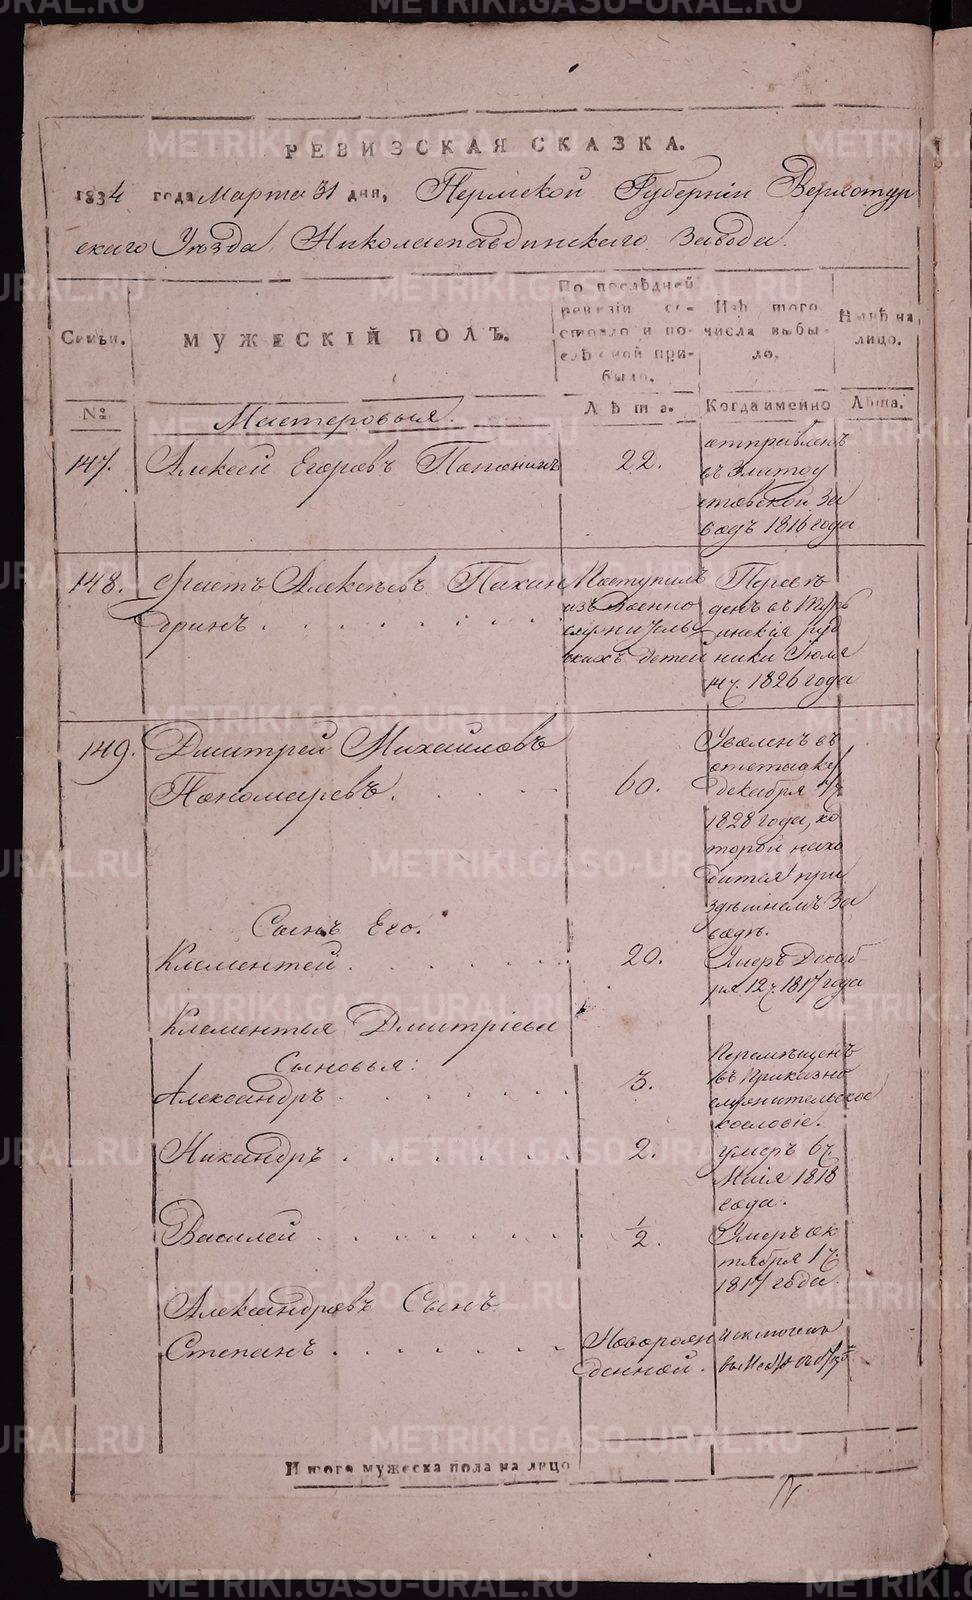 РЕВИЗСКАЯ СКАЗКА.
1834 года Марта 31 дня, Пермской Губерніи Верхотур
скаго Уѣзда Николаепавдинскаго Завода.
Семьи.
МУЖЕСКІЙ ПОЛЪ.
По послѣдней
ревизіи со-
стояло и по-
слѣ оной при-
было.
Изъ того
числа выбы-
ло.
Нынѣ на
лицо.
№
Мастеровыя.
Лѣта.
Когда именно
Лѣта.
147.
Алексей Егоровъ Папонинъ
22.
отправленъ
въ Златоу
стовской за
водъ 1816 года
148.
Алексѣевъ Пахан
гринъ
Поступилъ
изъ Военно
служительс
кихъ детей
Переве
денъ в Турь
инскія руд
ники Іюля
1826 года
149.
Дмитрей Михайловъ
Пономаревъ.
60.
Уволенъ въ
отставку
декабря
1828 года, ко
торой нахо
дится при
здешнемъ За
водѣ.
Сынъ Его.
Клементей.
20.
Умеръ Декаб
ря 12 ч. 1817 года
Клементья Дмитріева
Сыновья:
Александръ
3.
Перемѣщенъ
въ Приказно
служительское
сословіе.
Никандръ
2.
умеръ 6 ч.
Маія 1818
года.
Василей
1/2.
Умеръ ок
тября 1 ч.
1817 года.
Александровъ Сынъ
Степанъ
Новорож
денной.
исключенъ
Итого мужеска пола на лицо
METRIKI.GASO-URAL.RU